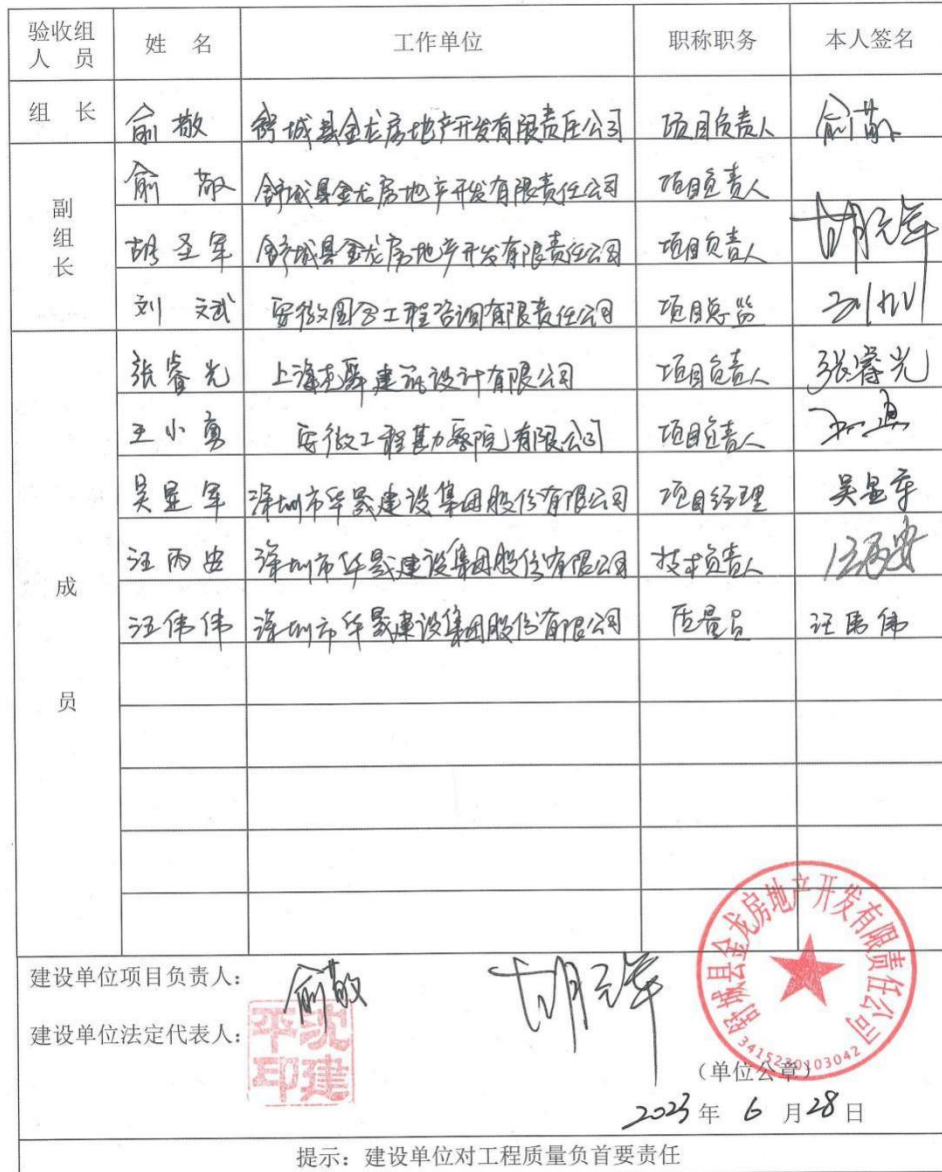 验收组人员 姓名 工作单位 职称职务 本人签名
组长 俞敬 舒城县金龙房地产开发有限责任公司 项目负责人 俞敬
副组长 俞敬 舒城县金龙房地产开发有限责任公司 项目负责人
胡圣军 舒城县金龙房地产开发有限责任公司 项目负责人
刘斌 安徽国合工程咨询有限责任公司 项目总监
成员 张睿光 上海尧舜建筑设计有限公司 项目负责人 张睿光
王小勇 安徽工程勘察院有限公司 项目负责人
吴显军 深圳市华晟建设集团股份有限公司 项目经理 吴显军
汪丙安 深圳市华晟建设集团股份有限公司 技术负责人 汪丙安
汪伟伟 深圳市华晟建设集团股份有限公司 质量员 汪伟伟
建设单位项目负责人: 俞敬
建设单位法定代表人:
舒城县金龙房地产开发有限责任公司
3415230103042
(单位公章)
2023年6月28日
提示:建设单位对工程质量负首要责任